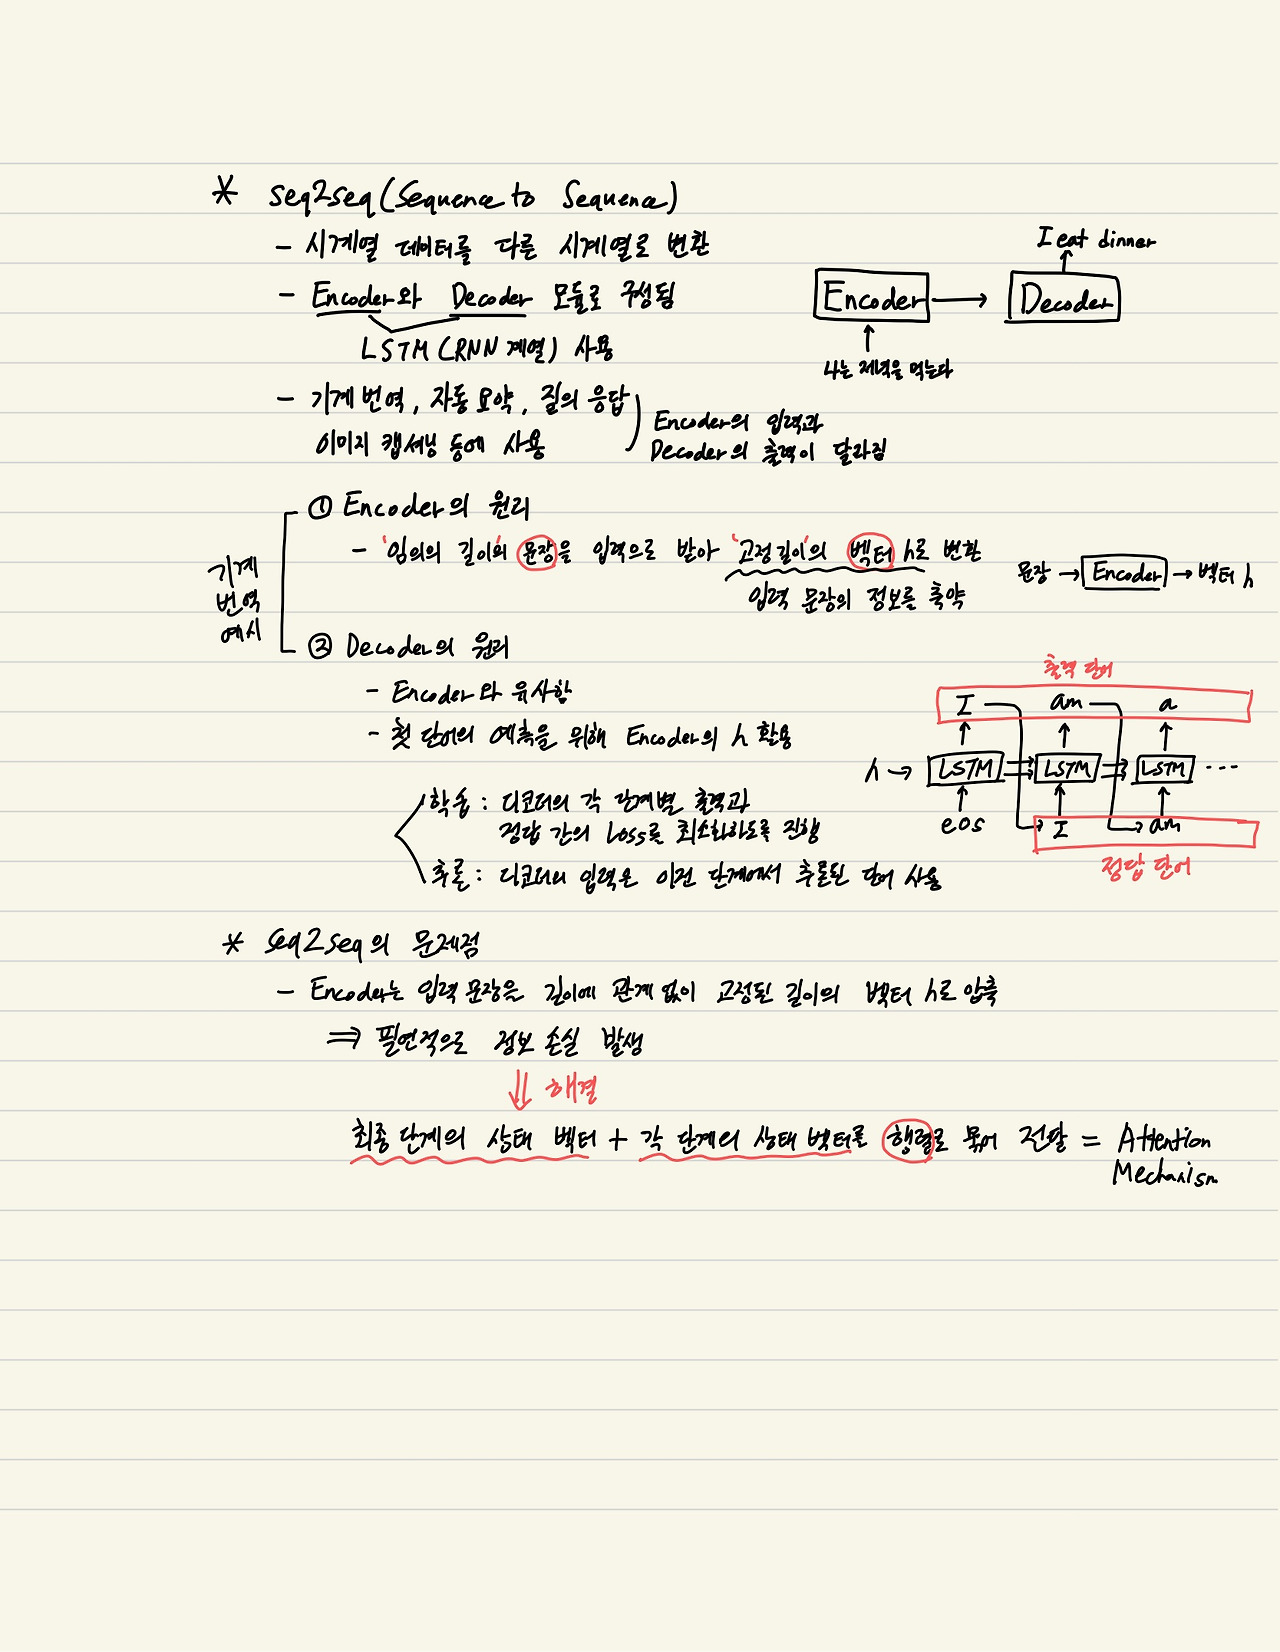 * seq2seq (Sequence to Sequence)
- 시계열 데이터를 다른 시계열로 변환
- Encoder와 Decoder 모듈로 구성됨
LSTM (RNN 계열) 사용
I eat dinner
Encoder → Decoder
나는 저녁을 먹는다
- 기계 번역, 자동 요약, 질의 응답
이미지 캡셔닝 등에 사용
Encoder의 입력과
Decoder의 출력이 달라짐
기계
번역
예시
① Encoder의 원리
- '임의의 길이'의 문장을 입력으로 받아 '고정 길이'의 벡터 h로 변환
입력 문장의 정보를 축약
문장 → Encoder → 벡터 h
② Decoder의 원리
- Encoder와 유사함
- 첫 단어의 예측을 위해 Encoder의 h 활용
학습 : 디코더의 각 단계별 출력과
정답 간의 Loss를 최소화하도록 진행
추론 : 디코더의 입력은 이전 단계에서 추론된 단어 사용
출력 단어
I am a
h → LSTM LSTM LSTM ...
eos I am
정답 단어
* seq2seq의 문제점
- Encoder는 입력 문장을 길이에 관계 없이 고정된 길이의 벡터 h로 압축
⇒ 필연적으로 정보 손실 발생
⇓ 해결
최종 단계의 상태 벡터 + 각 단계의 상태 벡터를 행렬로 묶어 전달 = Attention
Mechanism